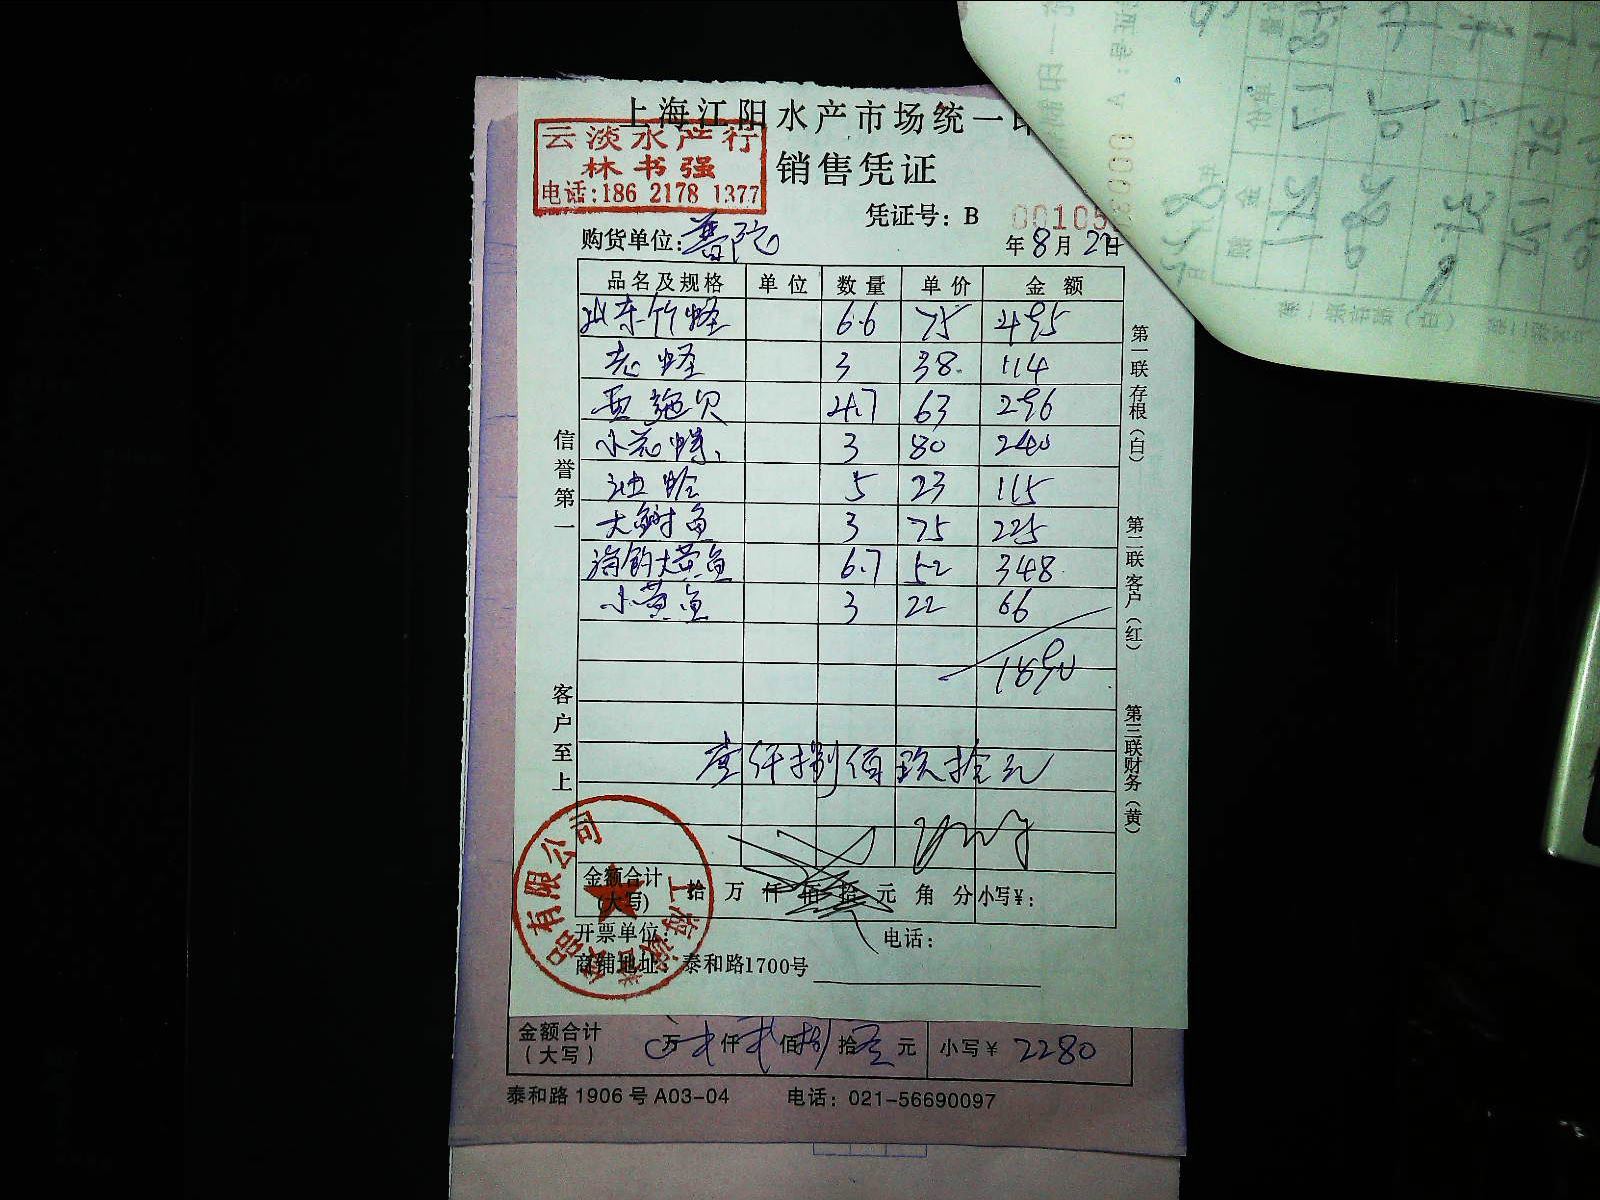 上海江阳水产市场统一
云淡水产行
林书强
电话:186 2178 1377
销售凭证
凭证号: B 00105
购货单位: 普陀
年 8 月 2 日
品名及规格 单位 数量 单价 金额
山东竹蛏 6.6 75 495
老蛏 3 38 114
西施贝 4.7 63 296
小花螺 3 80 240
油蛤 5 23 115
大鲥鱼 3 75 225
海钓大黄鱼 6.7 52 348
小黄鱼 3 22 66
1890
壹仟捌佰玖拾元
金额合计 (大写) 拾 万 仟 佰 拾 元 角 分 小写¥:
开票单位: 电话:
商铺地址: 泰和路1700号
信誉第一
客户至上
第一联存根(白)
第二联客户(红)
第三联财务(黄)
有限公司
上海
金额合计 (大写) 万 贰 仟 贰 佰 捌 拾 元 小写¥ 2280
泰和路 1906 号 A03-04 电话: 021-56690097